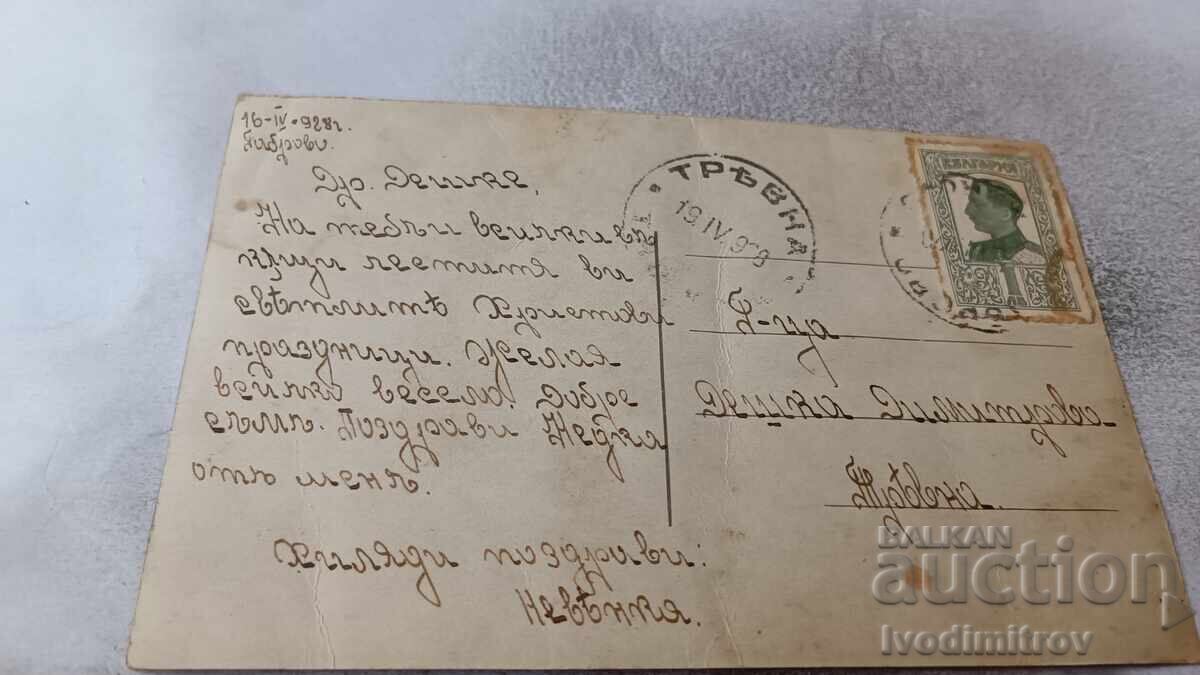 16-IV-928г.
Габрово.
Др. Дешке,
На тебъ и всички въ
кщи честитя ви
свѣтлитѣ Христови
празници. Желая
всичко весело. Добре
съмъ. Поздрави Недка
отъ менъ.
Хиляди поздрави:
Невѣнка.
ТРѢВНА
19.IV.928
БЪЛГАРИЯ
1
Г-ца
Дешка Димитрова
Трѣвна.
BALKAN
auction
Ivodimitrov